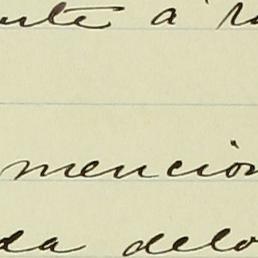 nte á r
mencion
da delo